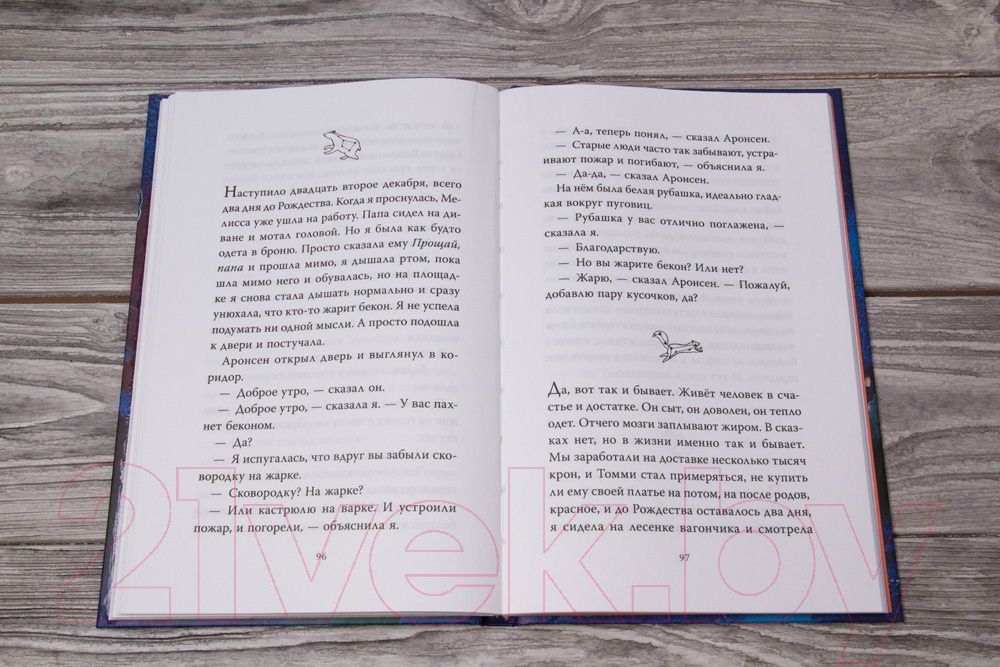 Наступило двадцать второе декабря, всего
два дня до Рождества. Когда я проснулась, Ме-
лисса уже ушла на работу. Папа сидел на ди-
ване и мотал головой. Но я была как будто
одета в броню. Просто сказала ему Прощай,
папа и прошла мимо, я дышала ртом, пока
шла мимо него и обувалась, но на площад-
ке я снова стала дышать нормально и сразу
унюхала, что кто-то жарит бекон. Я не успела
подумать ни одной мысли. А просто подошла
к двери и постучала.
Аронсен открыл дверь и выглянул в ко-
ридор.
— Доброе утро, — сказал он.
— Доброе утро, — сказала я. — У вас пах-
нет беконом.
— Да?
— Я испугалась, что вдруг вы забыли ско-
вородку на жарке.
— Сковородку? На жарке?
— Или кастрюлю на варке. И устроили
пожар, и погорели, — объяснила я.
96
— А-а, теперь понял, — сказал Аронсен.
— Старые люди часто так забывают, устра-
ивают пожар и погибают, — объяснила я.
— Да-да, — сказал Аронсен.
На нём была белая рубашка, идеально глад-
кая вокруг пуговиц.
— Рубашка у вас отлично поглажена, —
сказала я.
— Благодарствую.
— Но вы жарите бекон? Или нет?
— Жарю, — сказал Аронсен. — Пожалуй,
добавлю пару кусочков, да?
Да, вот так и бывает. Живёт человек в сча-
стье и достатке. Он сыт, он доволен, он тепло
одет. Отчего мозги заплывают жиром. В сказ-
ках нет, но в жизни именно так и бывает.
Мы заработали на доставке несколько тысяч
крон, и Томми стал примеряться, не купить
ли ему своей платье на потом, на после родов,
красное, и до Рождества оставалось два дня,
я сидела на лесенке вагончика и смотрела
97
21vek.by